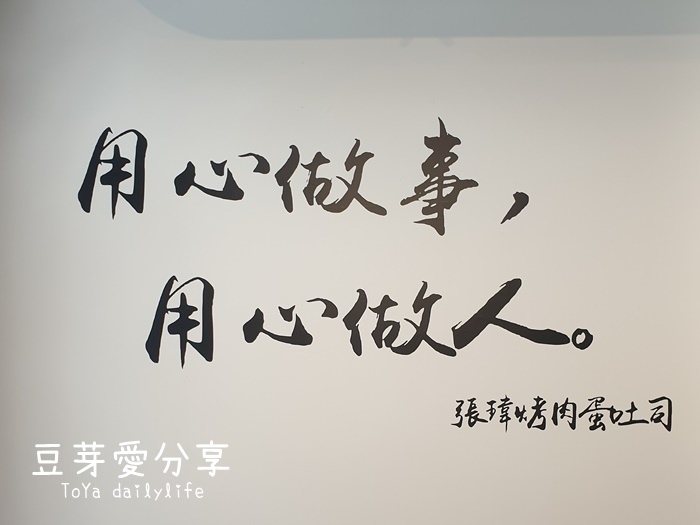 用心做事，
用心做人。
張瑋烤肉蛋吐司
豆芽愛分享
ToYa dailylife